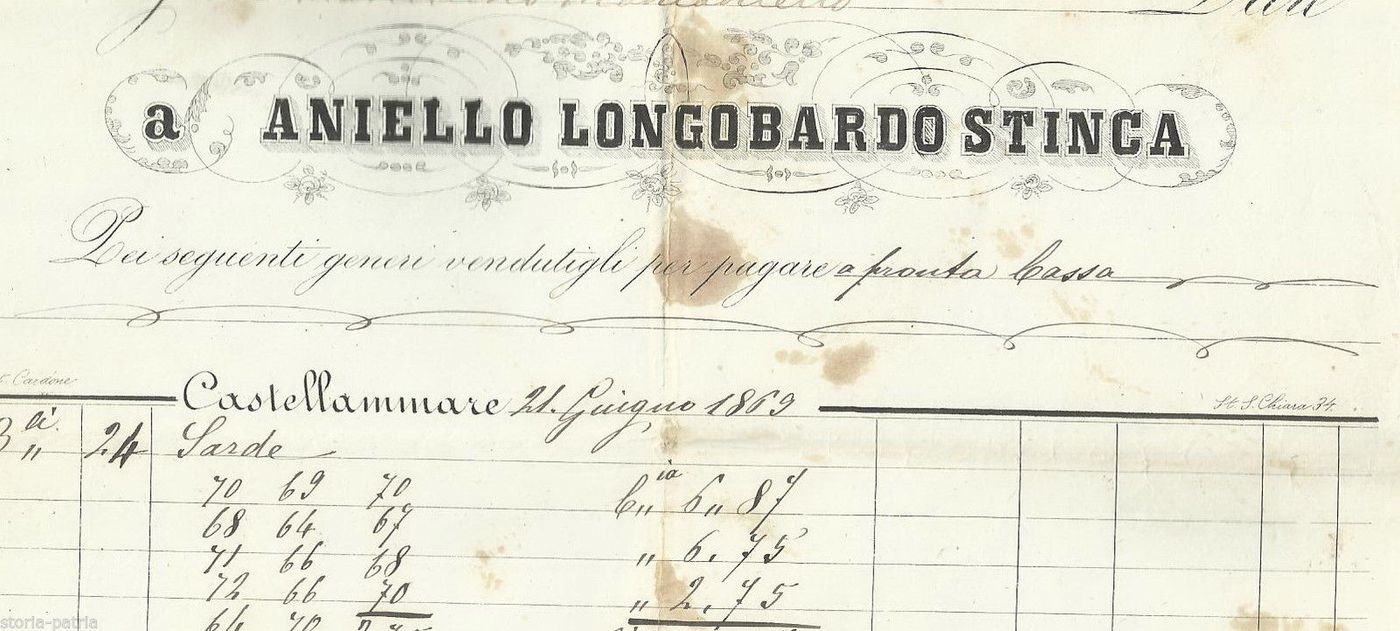 Dare
a ANIELLO LONGOBARDO STINCA
Dei seguenti generi vendutigli per pagare a pronta Cassa
Cardone
Castellammare 21. Giugno 1869
St. S. Chiara 34.
3 li 24 Sarde
70 69 70 C ia 6 87
68 64 67 " 6. 75
71 66 68 " 2. 75
72 66 70
64 70
storia-patria